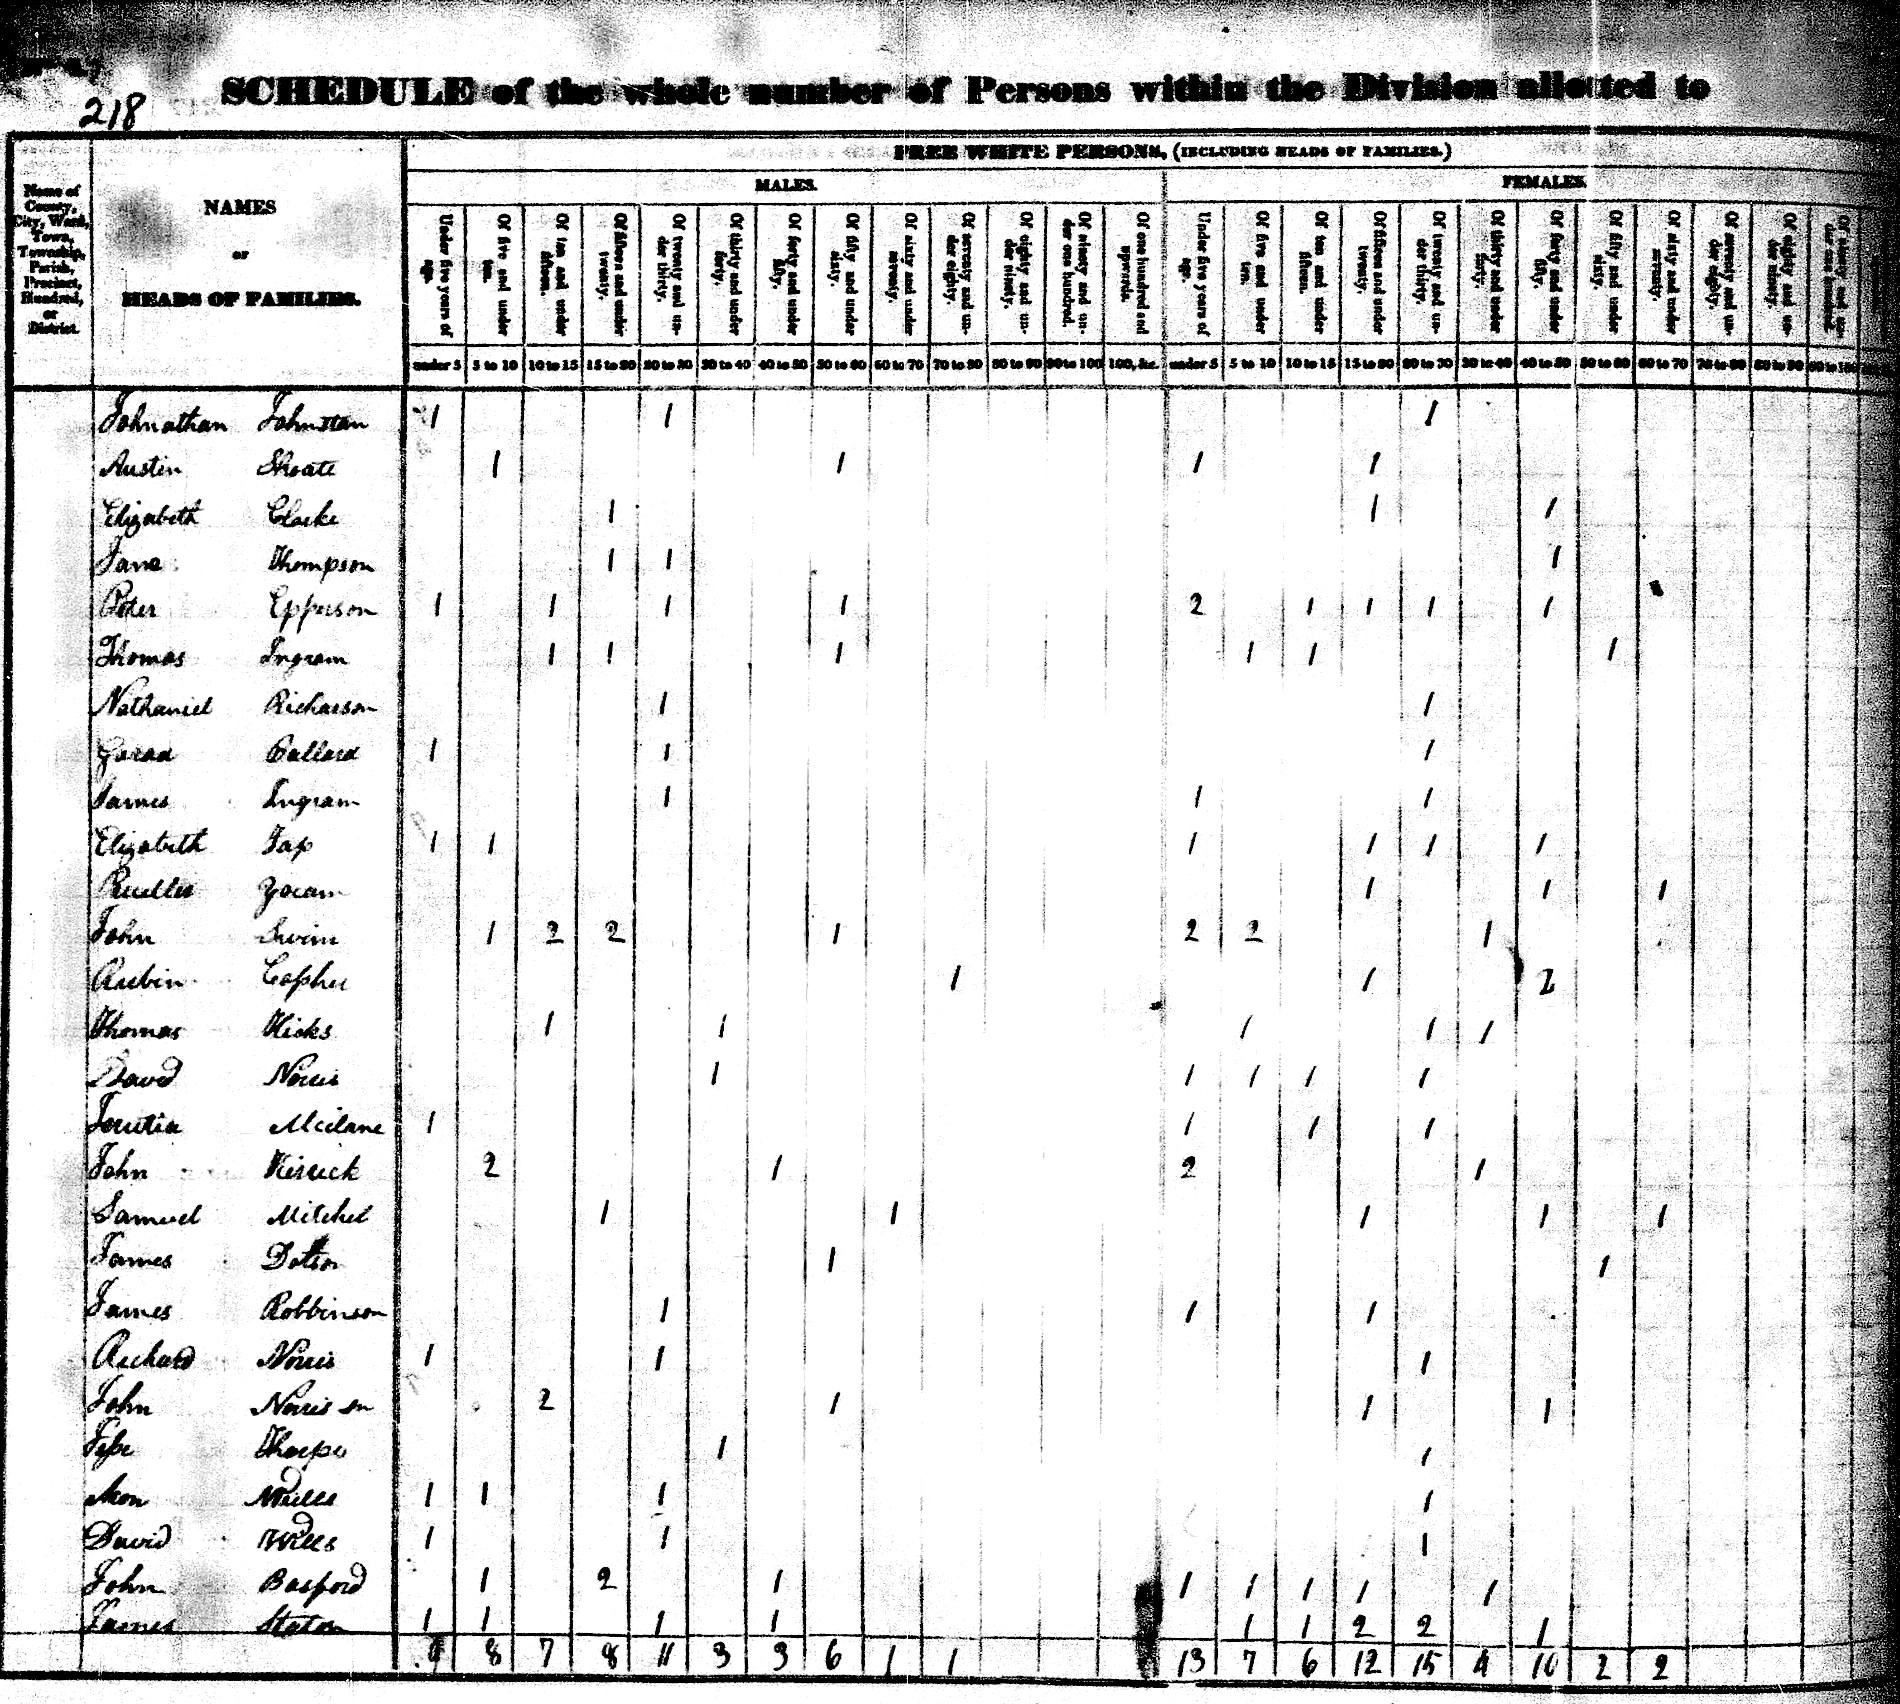 218
SCHEDULE of the whole number of Persons within the Division allotted to
FREE WHITE PERSONS, (INCLUDING HEADS OF FAMILIES.)
MALES. FEMALES.
Name of County, City, Ward, Town, Township, Parish, Precinct, Hundred, or District.
NAMES
or
HEADS OF FAMILIES.
Under five years of age. Of five and under ten. Of ten and under fifteen. Of fifteen and under twenty. Of twenty and under thirty. Of thirty and under forty. Of forty and under fifty. Of fifty and under sixty. Of sixty and under seventy. Of seventy and under eighty. Of eighty and under ninety. Of ninety and under one hundred. Of one hundred and upwards. Under five years of age. Of five and under ten. Of ten and under fifteen. Of fifteen and under twenty. Of twenty and under thirty. Of thirty and under forty. Of forty and under fifty. Of fifty and under sixty. Of sixty and under seventy. Of seventy and under eighty. Of eighty and under ninety. Of ninety and under one hundred.
under 5 5 to 10 10 to 15 15 to 20 20 to 30 30 to 40 40 to 50 50 to 60 60 to 70 70 to 80 80 to 90 90 to 100 100, &c. under 5 5 to 10 10 to 15 15 to 20 20 to 30 30 to 40 40 to 50 50 to 60 60 to 70 70 to 80 80 to 90 90 to 100
Johnathan Johnstan 1 1 1
Austin Shoate 1 1 1 1
Elizabeth Clarke 1 1 1
Jane Thompson 1 1 1
Peter Epperson 1 1 1 1 2 1 1 1 1
Thomas Ingram 1 1 1 1 1 1
Nathaniel Richarson 1 1
Ballard 1 1 1
James Ingram 1 1 1
Elizabeth 1 1 1 1 1 1
1 1 1
John Swim 1 2 2 1 2 2 1
Rubin Copher 1 1 2
Thomas Hicks 1 1 1 1 1
David Norris 1 1 1 1 1
1 1 1 1
John Kissick 2 1 2 1
Samuel Mitchel 1 1 1 1 1
James Dotson 1 1
James Robbinson 1 1 1
Richard Norris 1 1 1
John Norris sn 2 1 1 1
Tharpe 1 1
1 1 1 1
David Wills 1 1 1
John Basford 1 2 1 1 1 1 1 1
James Staton 1 1 1 1 1 1 2 2 1
9 8 7 8 11 3 3 6 1 1 13 7 6 12 15 4 10 2 2